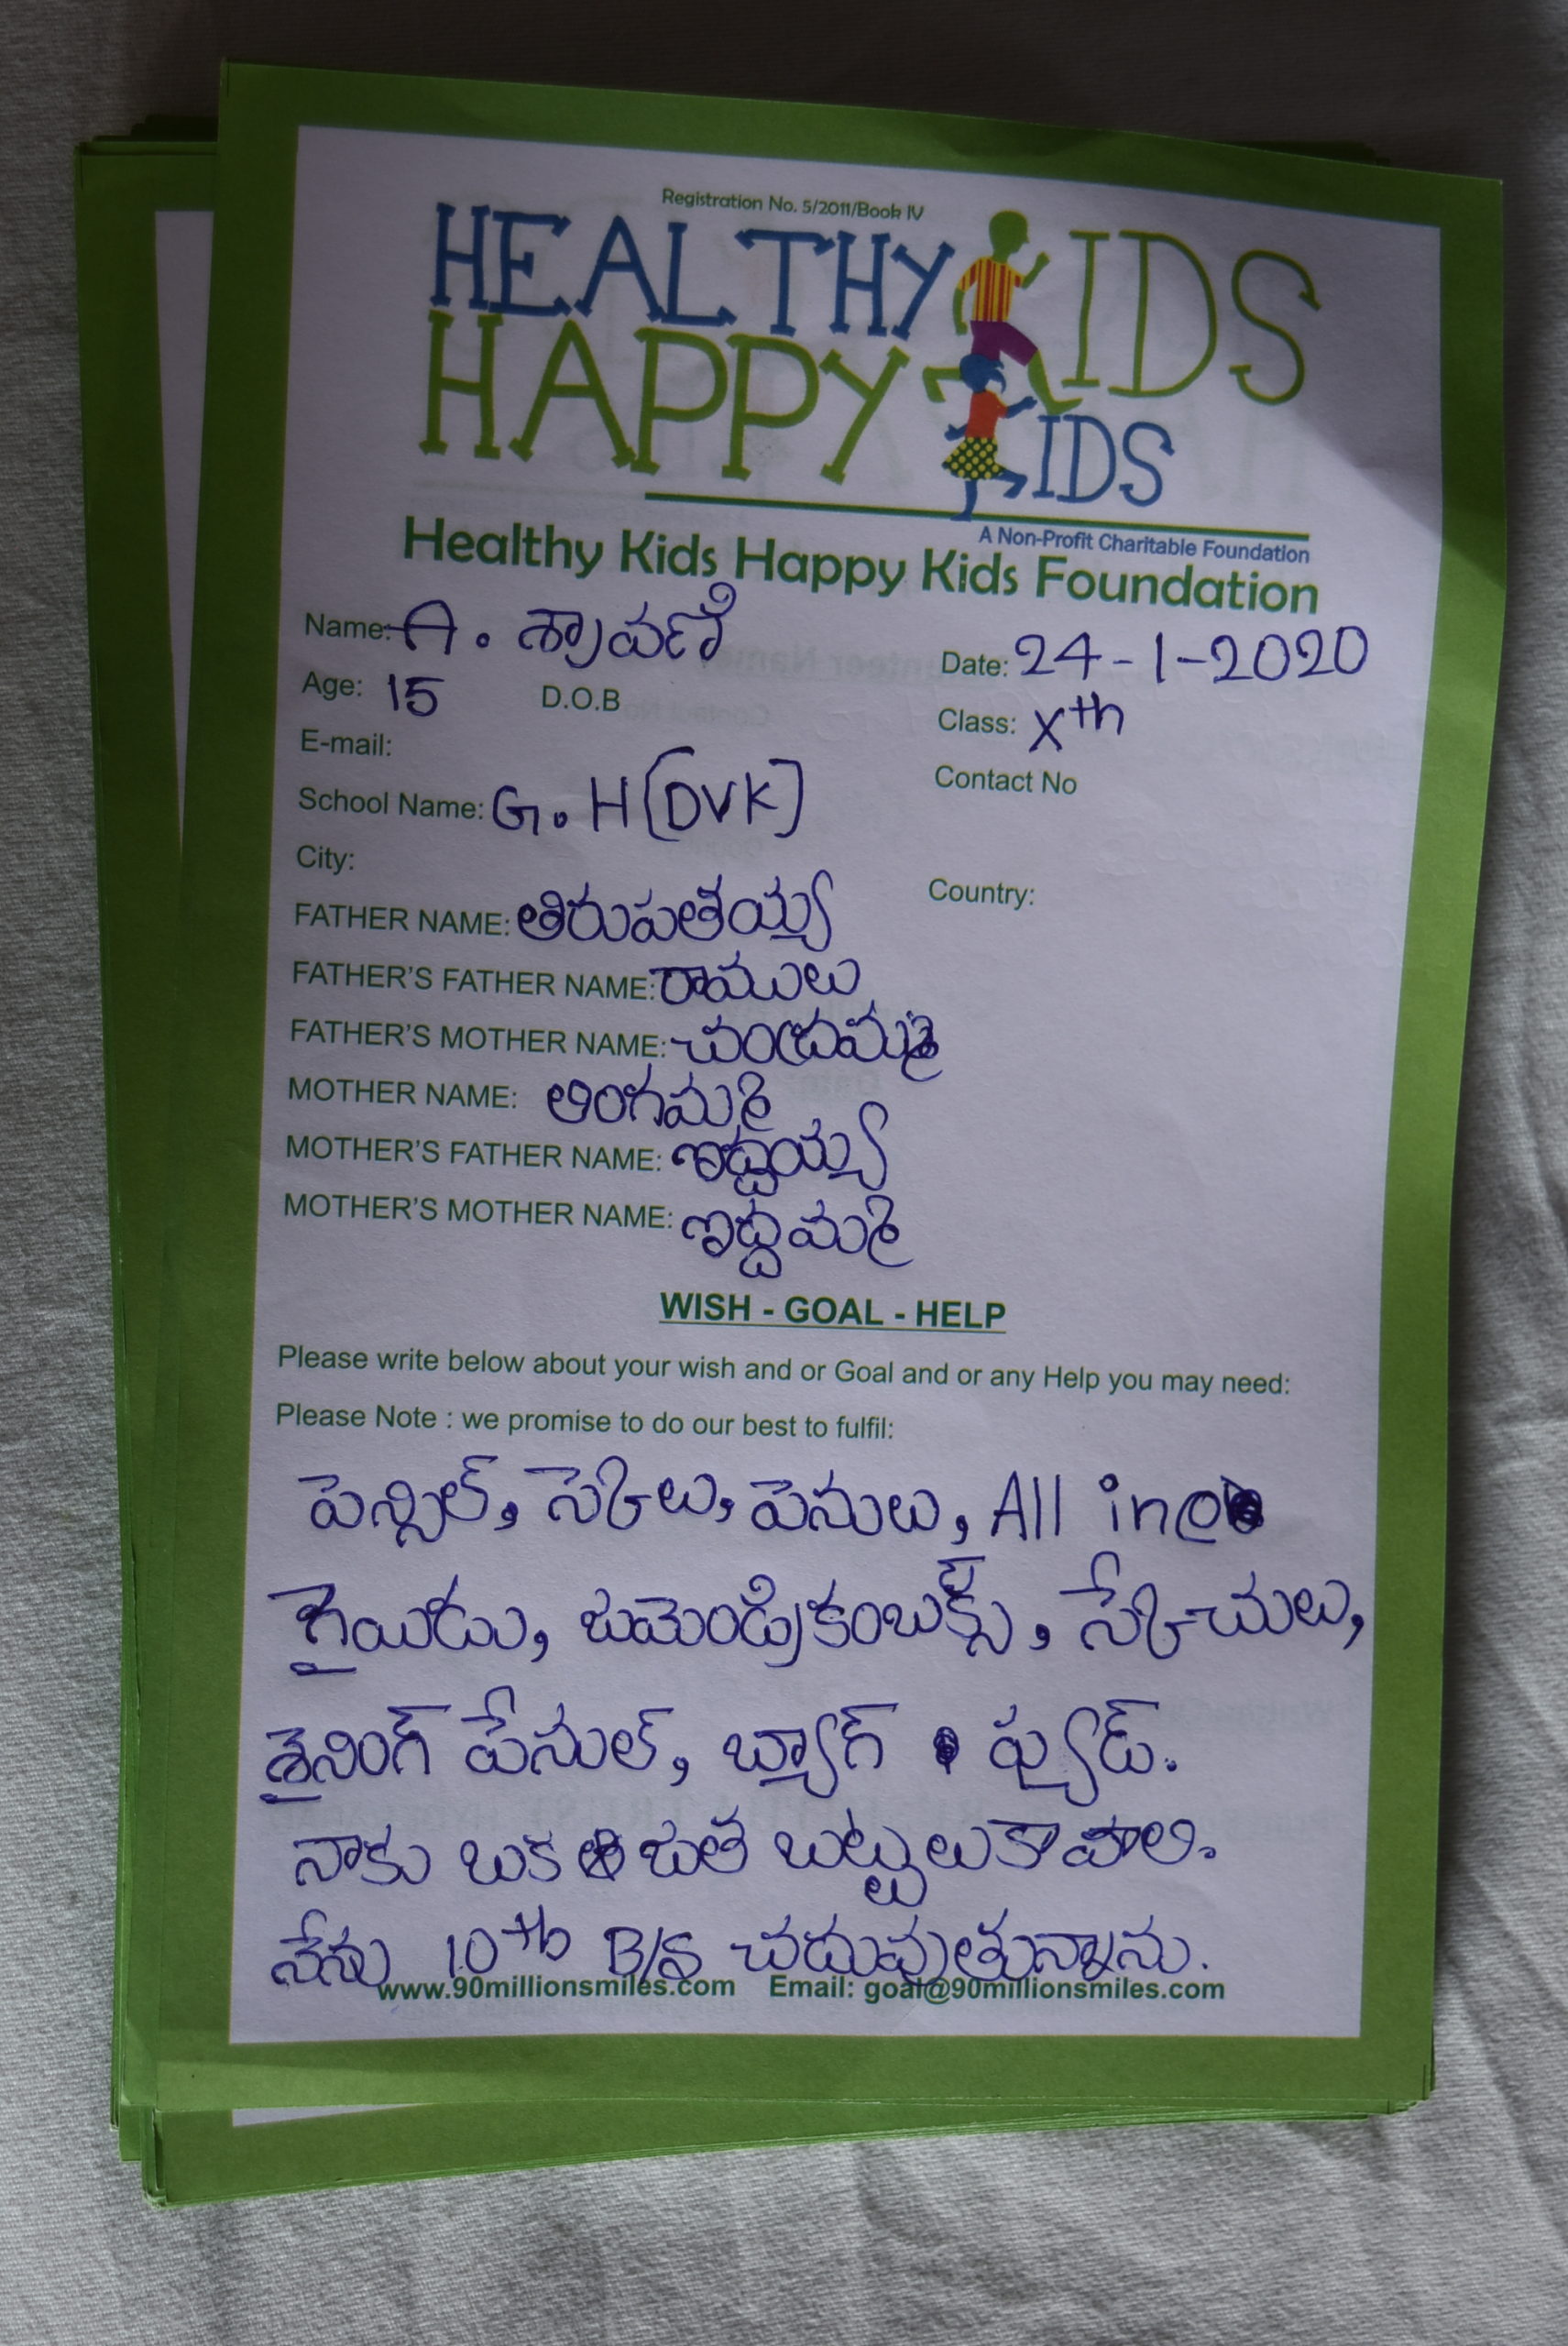 Registration No. 5/2011/Book IV
HEALTHY KIDS
HAPPY KIDS
A Non-Profit Charitable Foundation
Healthy Kids Happy Kids Foundation
Name: A. శ్రావణి Date: 24-1-2020
Age: 15 D.O.B Class: Xth
E-mail: Contact No
School Name: G.H [DVK]
City: Country:
FATHER NAME: తిరుపతయ్య
FATHER'S FATHER NAME: రాములు
FATHER'S MOTHER NAME: చంద్రమ్మ
MOTHER NAME: లింగమ్మ
MOTHER'S FATHER NAME: ఇద్దయ్య
MOTHER'S MOTHER NAME: ఇద్దమ్మ
WISH - GOAL - HELP
Please write below about your wish and or Goal and or any Help you may need:
Please Note : we promise to do our best to fulfil:
పెన్సిల్, స్కెలు, పెనులు, All in
గైయిడు, జుమెండ్రికంబక్స్, స్కేచులు,
శైనింగ్ పేనుల్, బ్యాగ్ ఫ్యుడ్.
నాకు ఒక జుత బట్టులు కావాలి.
నేను 10th B/S చదువుతున్నాను.
www.90millionsmiles.com Email: goal@90millionsmiles.com